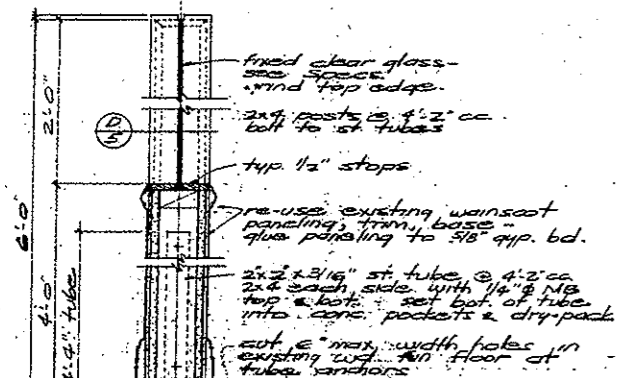 fixed clear glass-
see specs.
grind top edge.
2x4 posts @ 4'-2" cc
bolt to st. tubes
typ. 1/2" stops
re-use existing wainscot
paneling, trim, base -
glue paneling to 5/8" gyp. bd.
2"x2"x3/16" st. tube @ 4'-2" cc
2x4 each side with 1/4" ϕ MB
top & bot. - set bot. of tube
into conc. pockets & dry-pack
cut 6" max. width holes in
existing wd. fin floor at
tube anchors
D
5
2'-0"
6'-0"
4'-0"
4'-4" tube